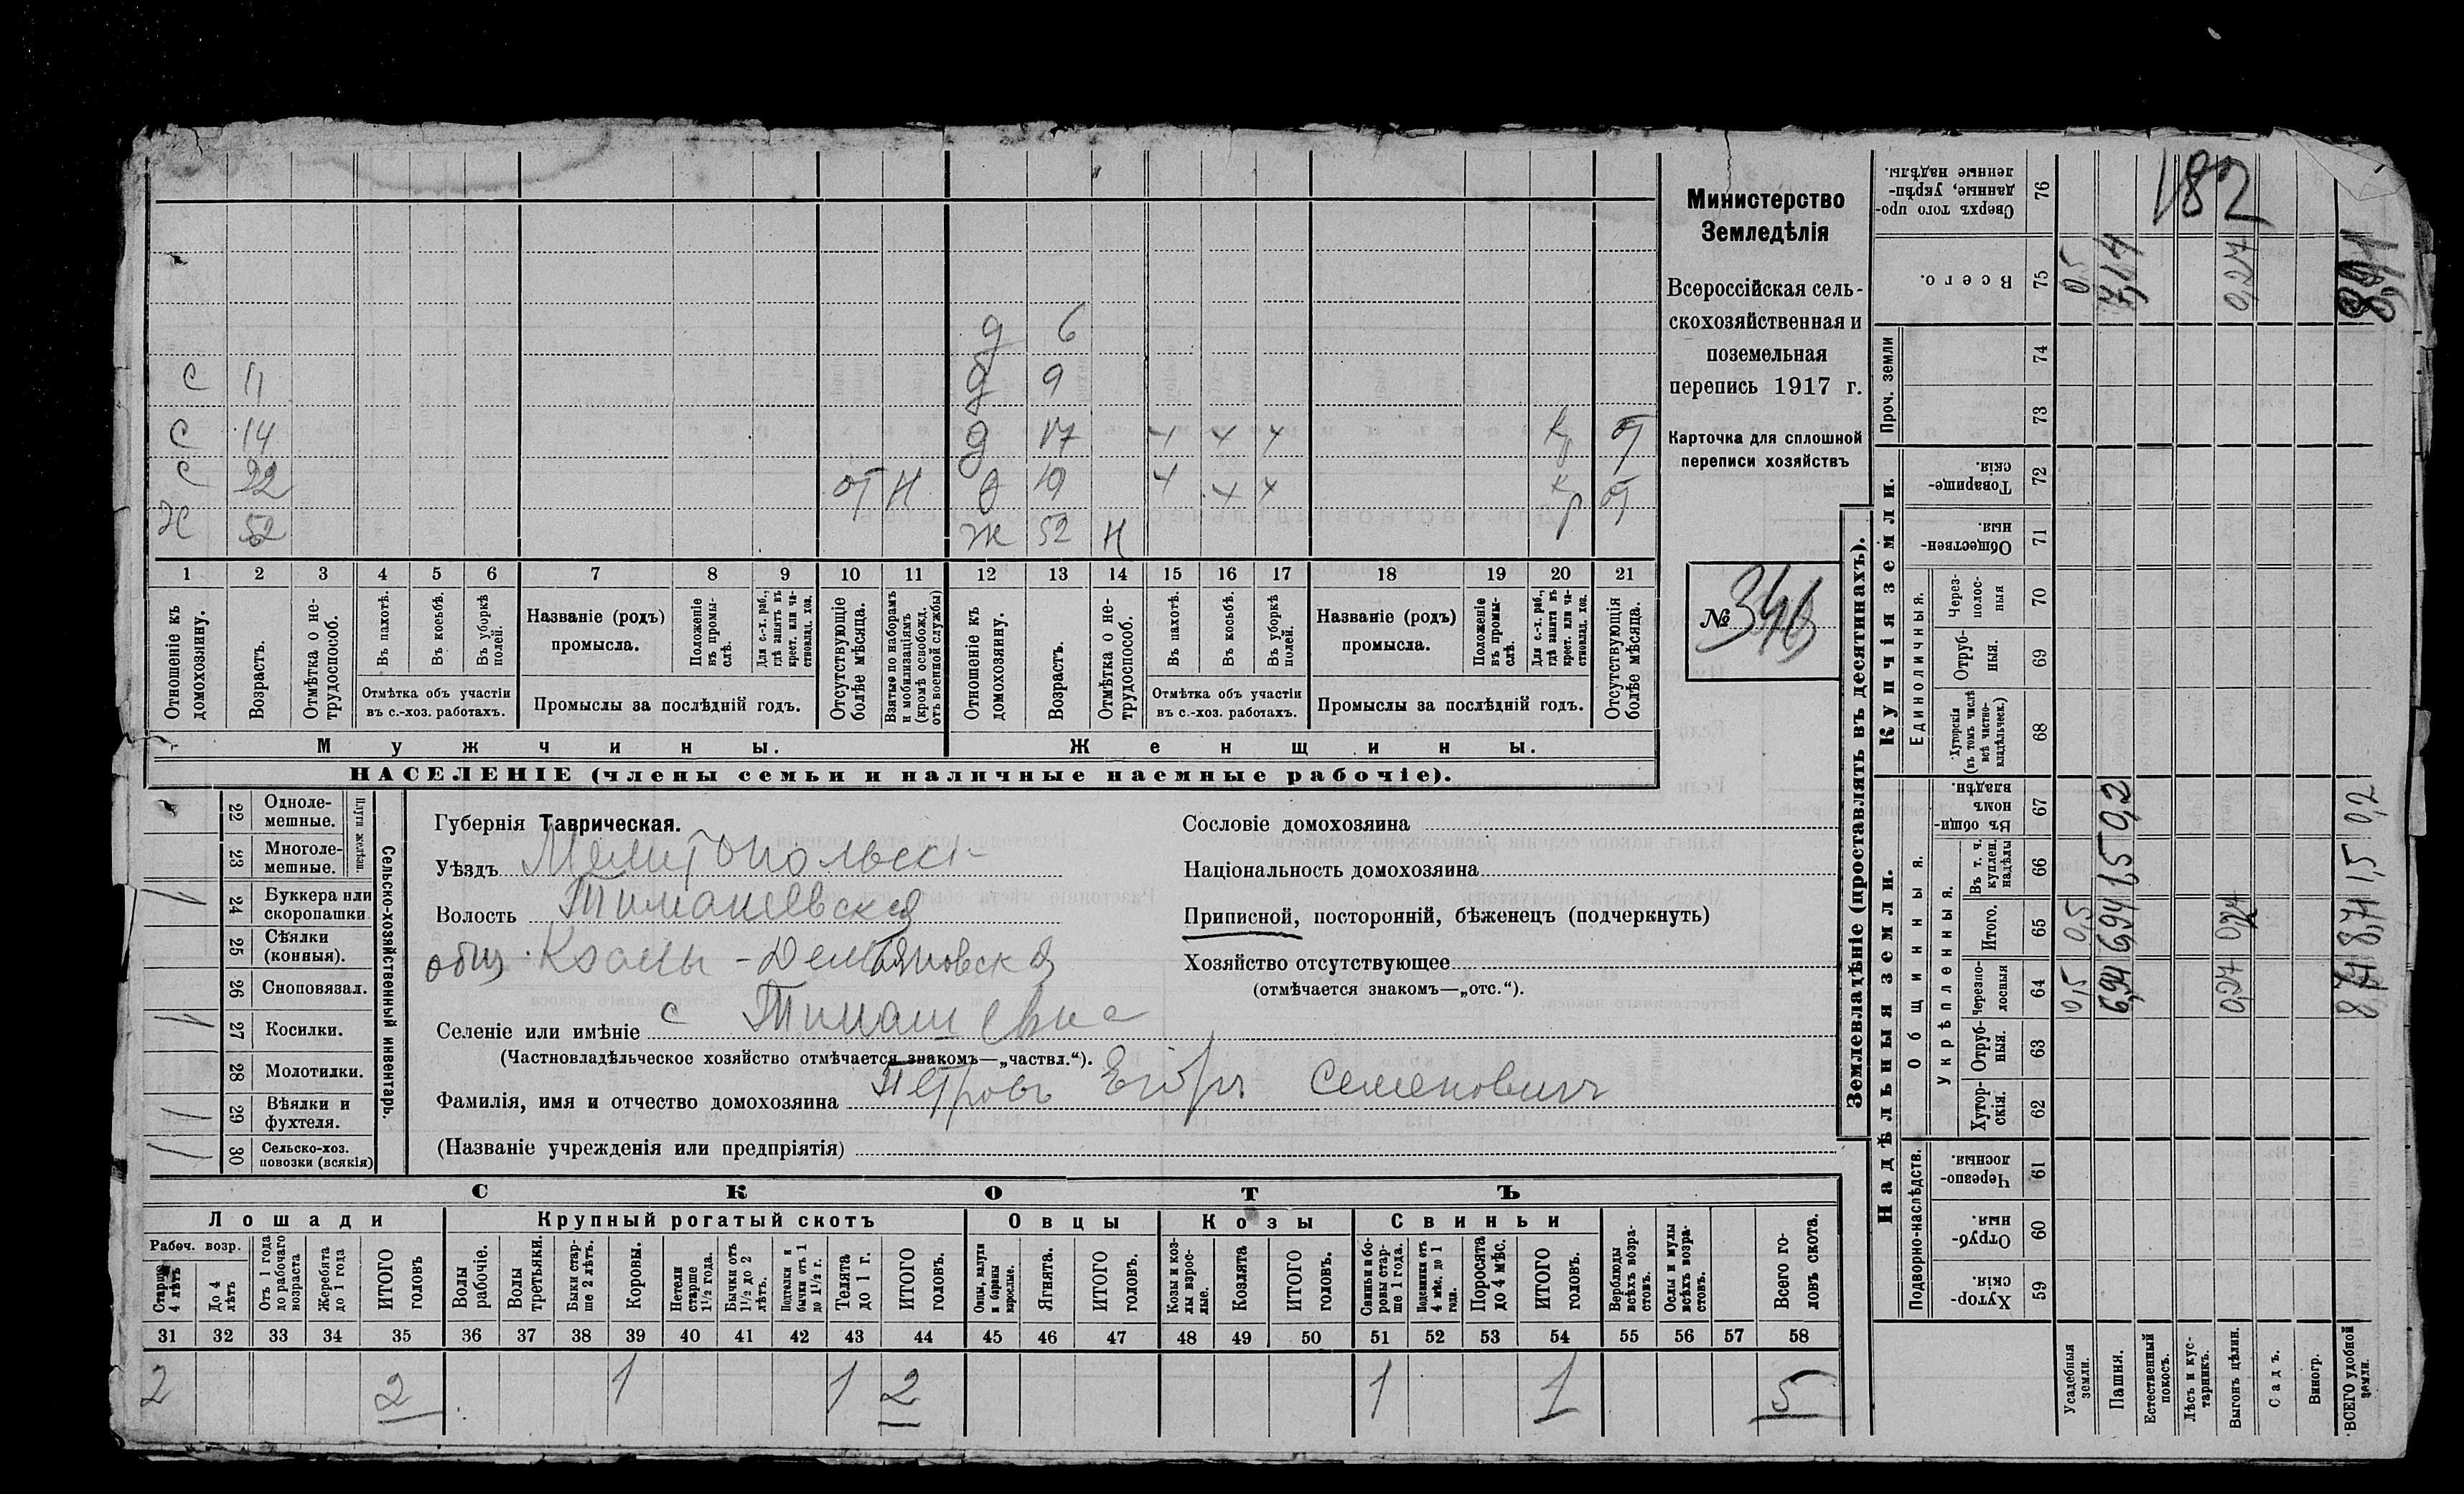 Министерство
Земледѣлія
Всероссійская сель-
скохозяйственная и
поземельная
перепись 1917 г.
Карточка для сплошной
переписи хозяйствъ
№ 346
182
д 6
с 11 д 9
с 14 д 17 + + + кр от
с 22 от н д 19 + + + кр от
х 52 ж 52 н
1 2 3 4 5 6 7 8 9 10 11 12 13 14 15 16 17 18 19 20 21
Отношеніе къ домохозяину.
Возрастъ.
Отмѣтка о не-трудоспособ.
Въ пахотѣ.
Въ косьбѣ.
Въ уборкѣ полей.
Отмѣтка объ участіи
въ с.-хоз. работахъ.
Названіе (родъ)
промысла.
Положеніе въ промы-слѣ.
Для с.-х. раб., гдѣ занятъ въ крест. или ча-стновлад. хоз.
Промыслы за послѣдній годъ.
Отсутствующіе болѣе мѣсяца.
Взятые по наборамъ и мобилизаціямъ (кромѣ освобожд. отъ военной службы)
Отношеніе къ домохозяину.
Возрастъ.
Отмѣтка о не-трудоспособ.
Въ пахотѣ.
Въ косьбѣ.
Въ уборкѣ полей.
Отмѣтка объ участіи
въ с.-хоз. работахъ.
Названіе (родъ)
промысла.
Положеніе въ промы-слѣ.
Для с.-х. раб., гдѣ занята въ крест. или ча-стновлад. хоз.
Промыслы за послѣдній годъ.
Отсутствующія болѣе мѣсяца.
Мужчины. Женщины.
НАСЕЛЕНІЕ (члены семьи и наличные наемные рабочіе).
Сельско-хозяйственный инвентарь.
Плуги желѣзн.
22 Одноле-мешные.
23 Многоле-мешные.
24 Буккера или скоропашки 1
25 Сѣялки (конныя).
26 Сноповязал.
27 Косилки. 1
28 Молотилки.
29 Вѣялки и фухтеля. 1
30 Сельско-хоз. повозки (всякія) 1
Губернія Таврическая.
Уѣздъ Мелитопольск
Волость Тимашевская
общ. Козьмы-Демьяновская
Селеніе или имѣніе с Тимашевка
(Частновладѣльческое хозяйство отмѣчается знакомъ—„частвл.“).
Фамилія, имя и отчество домохозяина Петровъ Егоръ Семеновичъ
(Названіе учрежденія или предпріятія)
Сословіе домохозяина
Національность домохозяина
Приписной, посторонній, бѣженец (подчеркнуть)
Хозяйство отсутствующее
(отмѣчается знакомъ—„отс.“).
СКОТЪ
Лошади Крупный рогатый скотъ Овцы Козы Свиньи
Рабоч. возр.
Старше 4 лѣтъ
До 4 лѣтъ
Отъ 1 года до рабочаго возраста
Жеребята до 1 года
ИТОГО головъ
Волы рабочіе.
Волы третьяки.
Быки стар-ше 2 лѣтъ.
Коровы.
Нетели старше 1½ года.
Бычки отъ 1½ до 2 лѣтъ.
Подтелки и бычки отъ 1 до 1½ г.
Телята до 1 г.
ИТОГО головъ.
Овцы, валухи и бараны взрослые.
Ягнята.
ИТОГО головъ.
Козы и коз-лы взрос-лые.
Козлята
ИТОГО головъ.
Свиньи и бо-ровы стар-ше 1 года.
Подсвинки отъ 4 мѣс. до 1 года.
Поросята до 4 мѣс.
ИТОГО головъ.
Верблюды всѣхъ возра-стовъ.
Ослы и мулы всѣхъ возра-стовъ.
Всего го-ловъ скота.
31 32 33 34 35 36 37 38 39 40 41 42 43 44 45 46 47 48 49 50 51 52 53 54 55 56 57 58
2 2 1 1 2 1 1 5
Землевладѣніе (проставлять въ десятинахъ).
Надѣльныя земли.
Купчія земли.
Проч. земли
Подворно-наслѣдств.
Общинныя.
Укрѣпленныя.
Единоличныя.
Хутор-скія. 59
Отруб-ныя. 60
Черезпо-лосныя. 61
Хутор-скія. 62
Отруб-ныя. 63
Черезпо-лосныя 64
Итого. 65
Въ т. ч. куплен. надѣлы 66
Въ общи-номъ владѣн. 67
Хуторскія (въ томъ числѣ всѣ частно-владѣльческ.) 68
Отруб-ныя. 69
Через-полос-ныя 70
Обществен-ныя. 71
Товарище-скія. 72
73
74
Всего. 75
Сверхъ того про-данные, укрѣп-ленные надѣлы. 76
Усадебныя земли. 0,5 0,5 0,5
Пашня. 6,94 6,94 1,5 0,2 7,14
Естественный покосъ.
Лѣсъ и кус-тарникъ.
Выгонъ цѣлин. 0,27 0,27 0,27
Садъ.
Виногр.
ВСЕГО удобной земли. 8,71 8,71 1,5 0,2 8,91